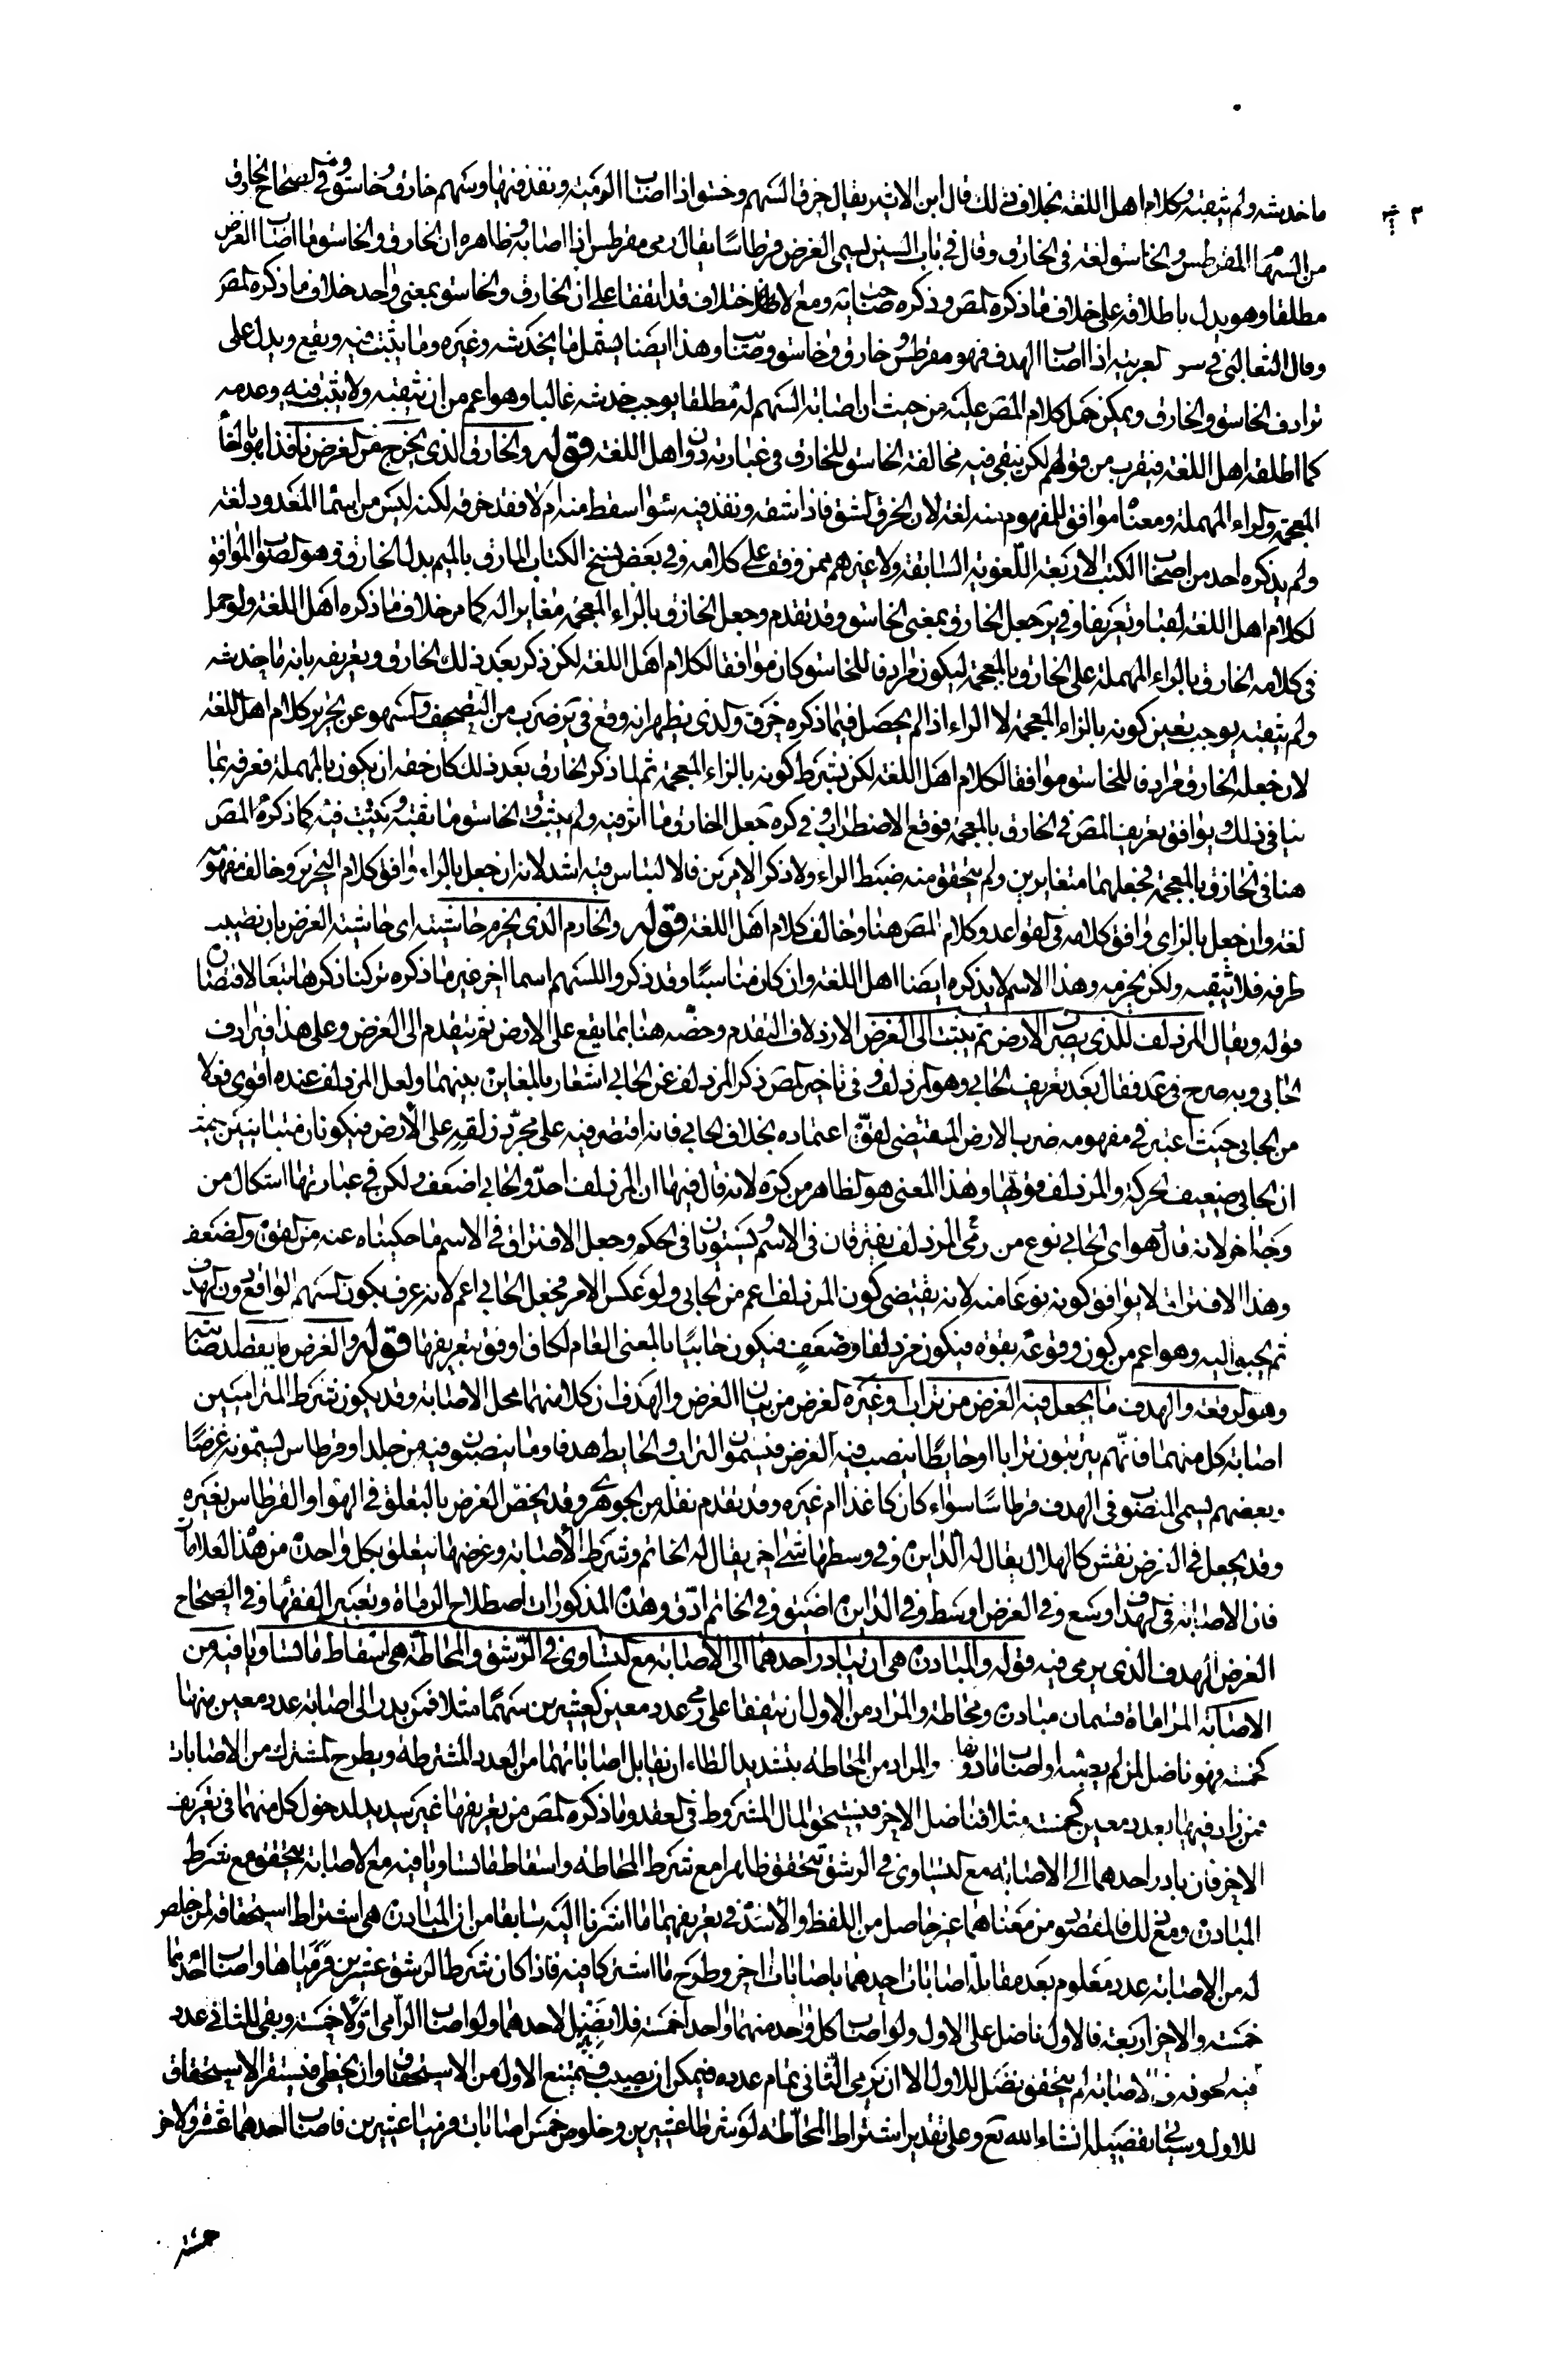 ما خدشه ولم يثقبه وكلام اهل اللغة بخلاف ذلك قال ابن الاثير يقال خزق السهم وخسق اذا اصاب الرمية ونفذ فيها وسهم خازق وخاسق وفي الصحاح الخازق
من السهام المقرطس والخاسق لغة في الخازق وقال في باب السين يسمى الغرض قرطاسا يقال رمى فقرطس اذا اصابه وظاهره ان الخازق والخاسق ما اصاب الغرض
مطلقا وهو يدل باطلاقه على خلاف ما ذكره المص وذكره صحابته ومع الاختلاف قد اتفقا على ان الخازق والخاسق بمعنى واحد خلاف ما ذكره المص
وقال الثعالبي في سر العربية اذا اصاب الهدف فهو مقرطس وخازق وخاسق وصائب وهذا ايضا يشمل ما يخدشه وغيره وما يثبت فيه ويقع ويدل على
ترادف الخاسق والخازق ويمكن حمل كلام المص عليه من حيث ان اصابة السهم له مطلقا يوجب خدشه غالبا وهو اعم من ان يثقبه ولا يثبت فيه وعدمه
كما اطلقه اهل اللغة فيقرب من قولهم لكن يبقى فيه مخالفة الخاسق للخازق في عبارته دون اهل اللغة قوله والخارق الذي يخرج من الغرض نافذا هو بالخاء
المعجمة والراء المهملة ومعناه موافق للمفهوم منه لغة لان الخرق الشق فاذا شقه ونفذ فيه سواء سقط منه ام لا فقد خرقه لكنه ليس من اسماء المعدود لغة
ولم يذكره احد من اصحاب الكتب الاربعة اللغوية السابقة ولا غيرهم ممن وقف على كلامه وفي بعض نسخ الكتاب المارق بالميم بدل الخارق وهو الصواب الموافق
لكلام اهل اللغة لقبا وتعريفا وفي ير جعل الخارق بمعنى الخاسق وقد تقدم وجعل الخازق بالزاء المعجمة مغايرا له كما مر خلاف ما ذكره اهل اللغة ولو حمل
في كلامه الخارق بالراء المهملة على الخازق بالمعجمة ليكون مرادفا للخاسق كان موافقا لكلام اهل اللغة لكن ذكر بعد ذلك الخازق وتعريفه بانه ما خدشه
ولم يثقبه يوجب تعين كونه بالزاء المعجمة لا الراء اذ لم يحصل فيما ذكره خرق والذي يظهر انه وقع في ير ضرب من التصحيف والسهو عن تحرير كلام اهل اللغة
لان جعله الخارق مرادفا للخاسق موافقا لكلام اهل اللغة لكن بشرط كونه بالزاء المعجمة ثم لما ذكر الخازق بعد ذلك كان حقه ان يكون بالمهملة فعرفه بما
ينافي ذلك ويوافق تعريف المص في الخازق بالمعجمة فوقع الاضطراب وفي كره جعل الخازق ما اثر فيه ولم يثبت والخاسق ما ثقبه وثبت فيه كما ذكره المص
هنا في الخازق بالمعجمة فجعلهما متغايرين ولم يتحقق منه ضبط الراء ولا ذكر الامرين فالالتباس فيه اشد لانه ان جعل بالراء وافق كلام التحرير وخالف مفهومه
لغة وان جعل بالزاي وافق كلامه في القواعد وكلام المص هنا وخالف كلام اهل اللغة قوله والخارم الذي يخرم حاشيته اي حاشية الغرض بان يصيب
طرفه فلا يثقبه ولكن يخرمه وهذا الاسم لا يذكره ايضا اهل اللغة وان كان مناسبا وقد ذكروا للسهم اسما اخر غير ما ذكره تركنا ذكرها تبعا لاقتصاره
قوله ويقال المزدلف للذي يضرب الارض ثم يثبت الى الغرض الازدلاف التقدم وخصه هنا بما يقع على الارض ثم يتقدم الى الغرض وعلى هذا فيرادف
الحابي وبه صرح في عد فقال بعد تعريف الحابي وهو المزدلف وفي تاخير المص ذكر المزدلف عن الحابي اشعار بالمغايرة بينهما ولعل المزدلف عنده اقوى فعلا
من الحابي حيث اعتبر في مفهومه ضرب الارض المقتضي لقوة اعتماده بخلاف الحابي فانه اقتصر فيه على مجرد زلقه على الارض فيكونان متباينين بمعنى
ان الحابي ضعيف الحركة والمزدلف قويها وهذا المعنى هو الظاهر من كره لانه قال فيها ان المزدلف احد والحابي اضعف ولكن في عبارتها اشكال من
وجه اخر لانه قال هو اي الحابي نوع من رمي المزدلف يفترقان في الاسم ويستويان في الحكم وجعل الافتراق في الاسم ما حكيناه عنه من القوة والضعف
وهذا الافتراق لا يوافق كونه نوعا منه لانه يقتضي كون المزدلف اعم من الحابي ولو عكس الامر فجعل الحابي اعم لانه عرف بكون السهم الواقع دون الهدف
ثم يحبو اليه وهو اعم من كون وقوعه بقوة فيكون مزدلفا وضعف فيكون حابيا بالمعنى العام لكان اوفق بتعريفها قوله والغرض ما يقصد اصابته
وهو الرقعة والهدف ما يجعل فيه الغرض من تراب وغيره الغرض من بيان الغرض والهدف ان كلا منهما محل الاصابة وقد يكون شرط المتراميين
اصابة كل منهما فانهم يرتبون ترابا او حايطا ينصب فيه الغرض فيسمون التراب والحايط هدفا وما ينصبون فيه من جلد او قرطاس يسمونه غرضا
وبعضهم يسمى المنصوب في الهدف قرطاسا سواء كان كاغذا ام غيره وقد تقدم نقله من الجوهري وقد يخص الغرض بالمعلق في الهواء والقرطاس بغيره
وقد يجعل في الغرض نقش كالهلال يقال له الدايرة وفي وسطها شئ اخر يقال له الخاتم وشرط الاصابة وغرضها يتعلق بكل واحدة من هذه العلامات
فان الاصابة في الهدف اوسع وفي الغرض اوسط وفي الدايرة اضيق وفي الخاتم ادق وهذه المذكورات اصطلاح الرماة وتعبير الفقهاء وفي الصحاح
الغرض الهدف الذي يرمى فيه قوله والمبادرة هي ان يبادر احدهما الى الاصابة مع التساوي في الرشق والمحاطة هي اسقاط ما تساويا فيه من
الاصابة المراماة قسمان مبادرة ومحاطة والمراد من الاول ان يتفقا على رمي عدد معين كعشرين سهما مثلا فمن بدر الى اصابة عدد معين منها
كخمسة فهو ناضل لمن لم يصب او اصاب ما دونها والمراد من المحاطة بتشديد الطاء ان يقابل اصاباتهما من العدد المشترطة ويطرح المشترك من الاصابات
فمن زاد فيها بعدد معين كخمسة مثلا فناضل الاخر فيستحق المال المشروط في العقد وما ذكره المص من تعريفها غير سديد لدخول كل منهما في تعريف
الاخر فان بادر احدهما الى الاصابة مع التساوي في الرشق يتحقق ظاهرا مع شرط المحاطة واسقاط ما تساويا فيه مع الاصابة يتحقق مع شرط
المبادرة ومع ذلك فالمقصود من معناهما غير حاصل من اللفظ والاسد في تعريفهما ما اشرنا اليه سابقا من ان المبادرة هي اشتراط استحقاقه لمن خلص
له من الاصابة عدد معلوم بعد مقابلة اصابات احدهما باصابات الاخر وطرح ما اشتركا فيه فاذا كان شرط الرشق عشرين فرمياها واصاب احدهما
خمسة والاخر اربعة فالاول ناضل على الاول ولو اصاب كل واحد منهما واحد خمسة فلا نضل لاحدهما ولو اصاب الرامي اولا خمسة وبقي للثاني عدد
فيه لحوقه في الاصابة لم يتحقق نضل للاول الا ان يرمي الثاني تمام عدده فيمكن ان يصيب فيمتنع الاول من الاستحقاق وان يخطئ فيستقر الاستحقاق
للاول وسيأتي تفصيله انشاء الله تع وعلى تقدير اشتراط المحاطة لو شرطا عشرين وخلوص خمس اصابات فرميا عشرين فاصاب احدهما عشرة والاخر
خمسة